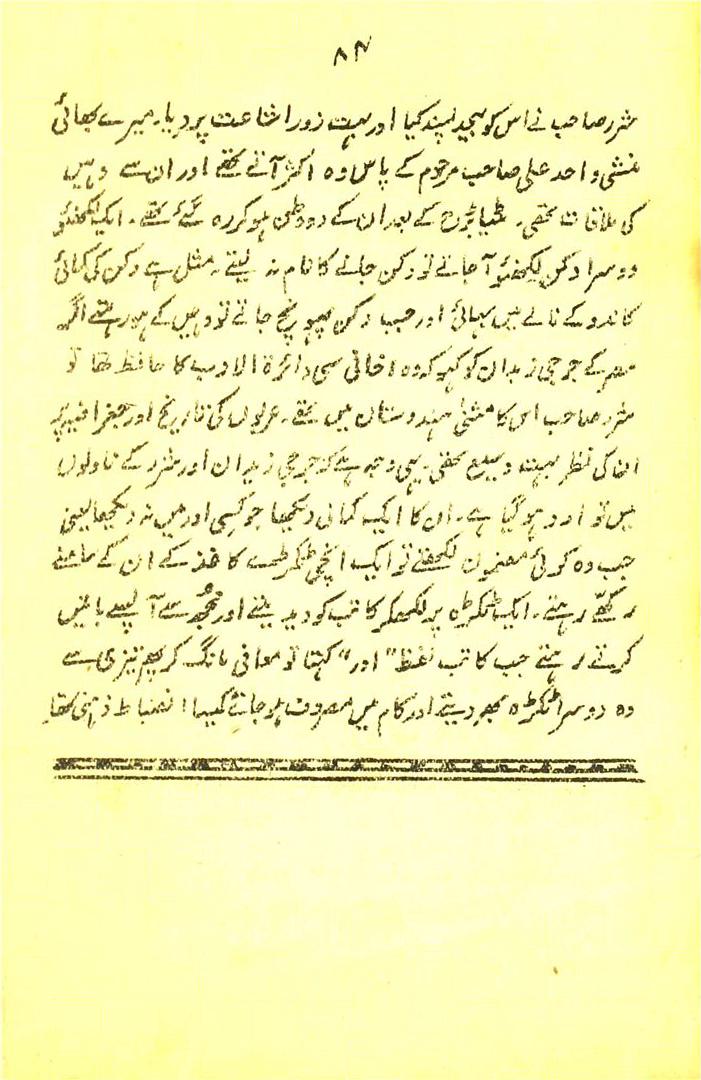 ۸۴
شرر صاحب نے اس کو بیحد پسند کیا اور بہت زور اشاعت پر دیا۔ میرے بھائی
منشی واحد علی صاحب مرحوم کے پاس وہ اکثر آتے تھے اور ان سے وہیں
کی ملاقات تھی۔ مٹیا برج کے بعد ان کے دو وطن ہو کر رہ گئے تھے۔ ایک لکھنئو
دوسرا دکن لکھنئو آ جاتے تو دکن جانے کا نام نہ لیتے۔ مثل ہے دکن کی کمائی
کاندو کے نالے میں بہائی اور جب دکن پہونچ جاتے تو وہیں کے ہو رہتے اگر
مصر کے جرجی زیدان کو کہو کہ وہ اخانی سی دائرۃ الادب کا حافظ تھا تو
شرر صاحب اس کا مثنیٰ ہندوستان میں تھے۔ عربوں کی تاریخ اور جغرافیہ پر
ان کی نظر بہت وسیع تھی۔ یہی وجہ ہے کہ جرجی زیدان اور شرر کے ناولوں
میں توارد ہو گیا ہے۔ ان کا ایک کمال دیکھا جو کسی اور میں نہ دیکھا یعنی
جب وہ کوئی مضمون لکھتے تو ایک انچی ٹکڑے کاغذ کے ان کے سامنے
رکھے رہتے۔ ایک ٹکڑہ پر لکھکر کاتب کو دیدیتے اور مجھ سے آپ سے باتیں
کرتے رہتے جب کاتب لفظ "اور" کہتا تو معافی مانگ کر پھر تیزی سے
وہ دوسرا ٹکڑہ بھر دیتے اور کام میں مصروف ہو جاتے کیسا انضباط ذہنی تھا۔